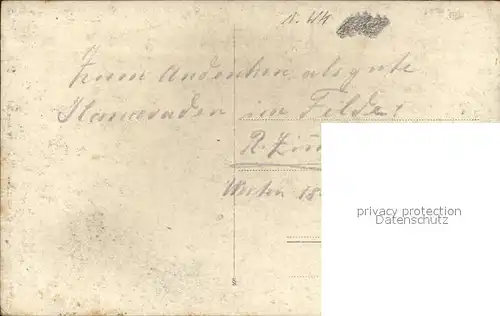 1. WK
Zum Andenken als gute
Kameraden im Felde!
R. Zim
Westen 18
privacy protection
Datenschutz